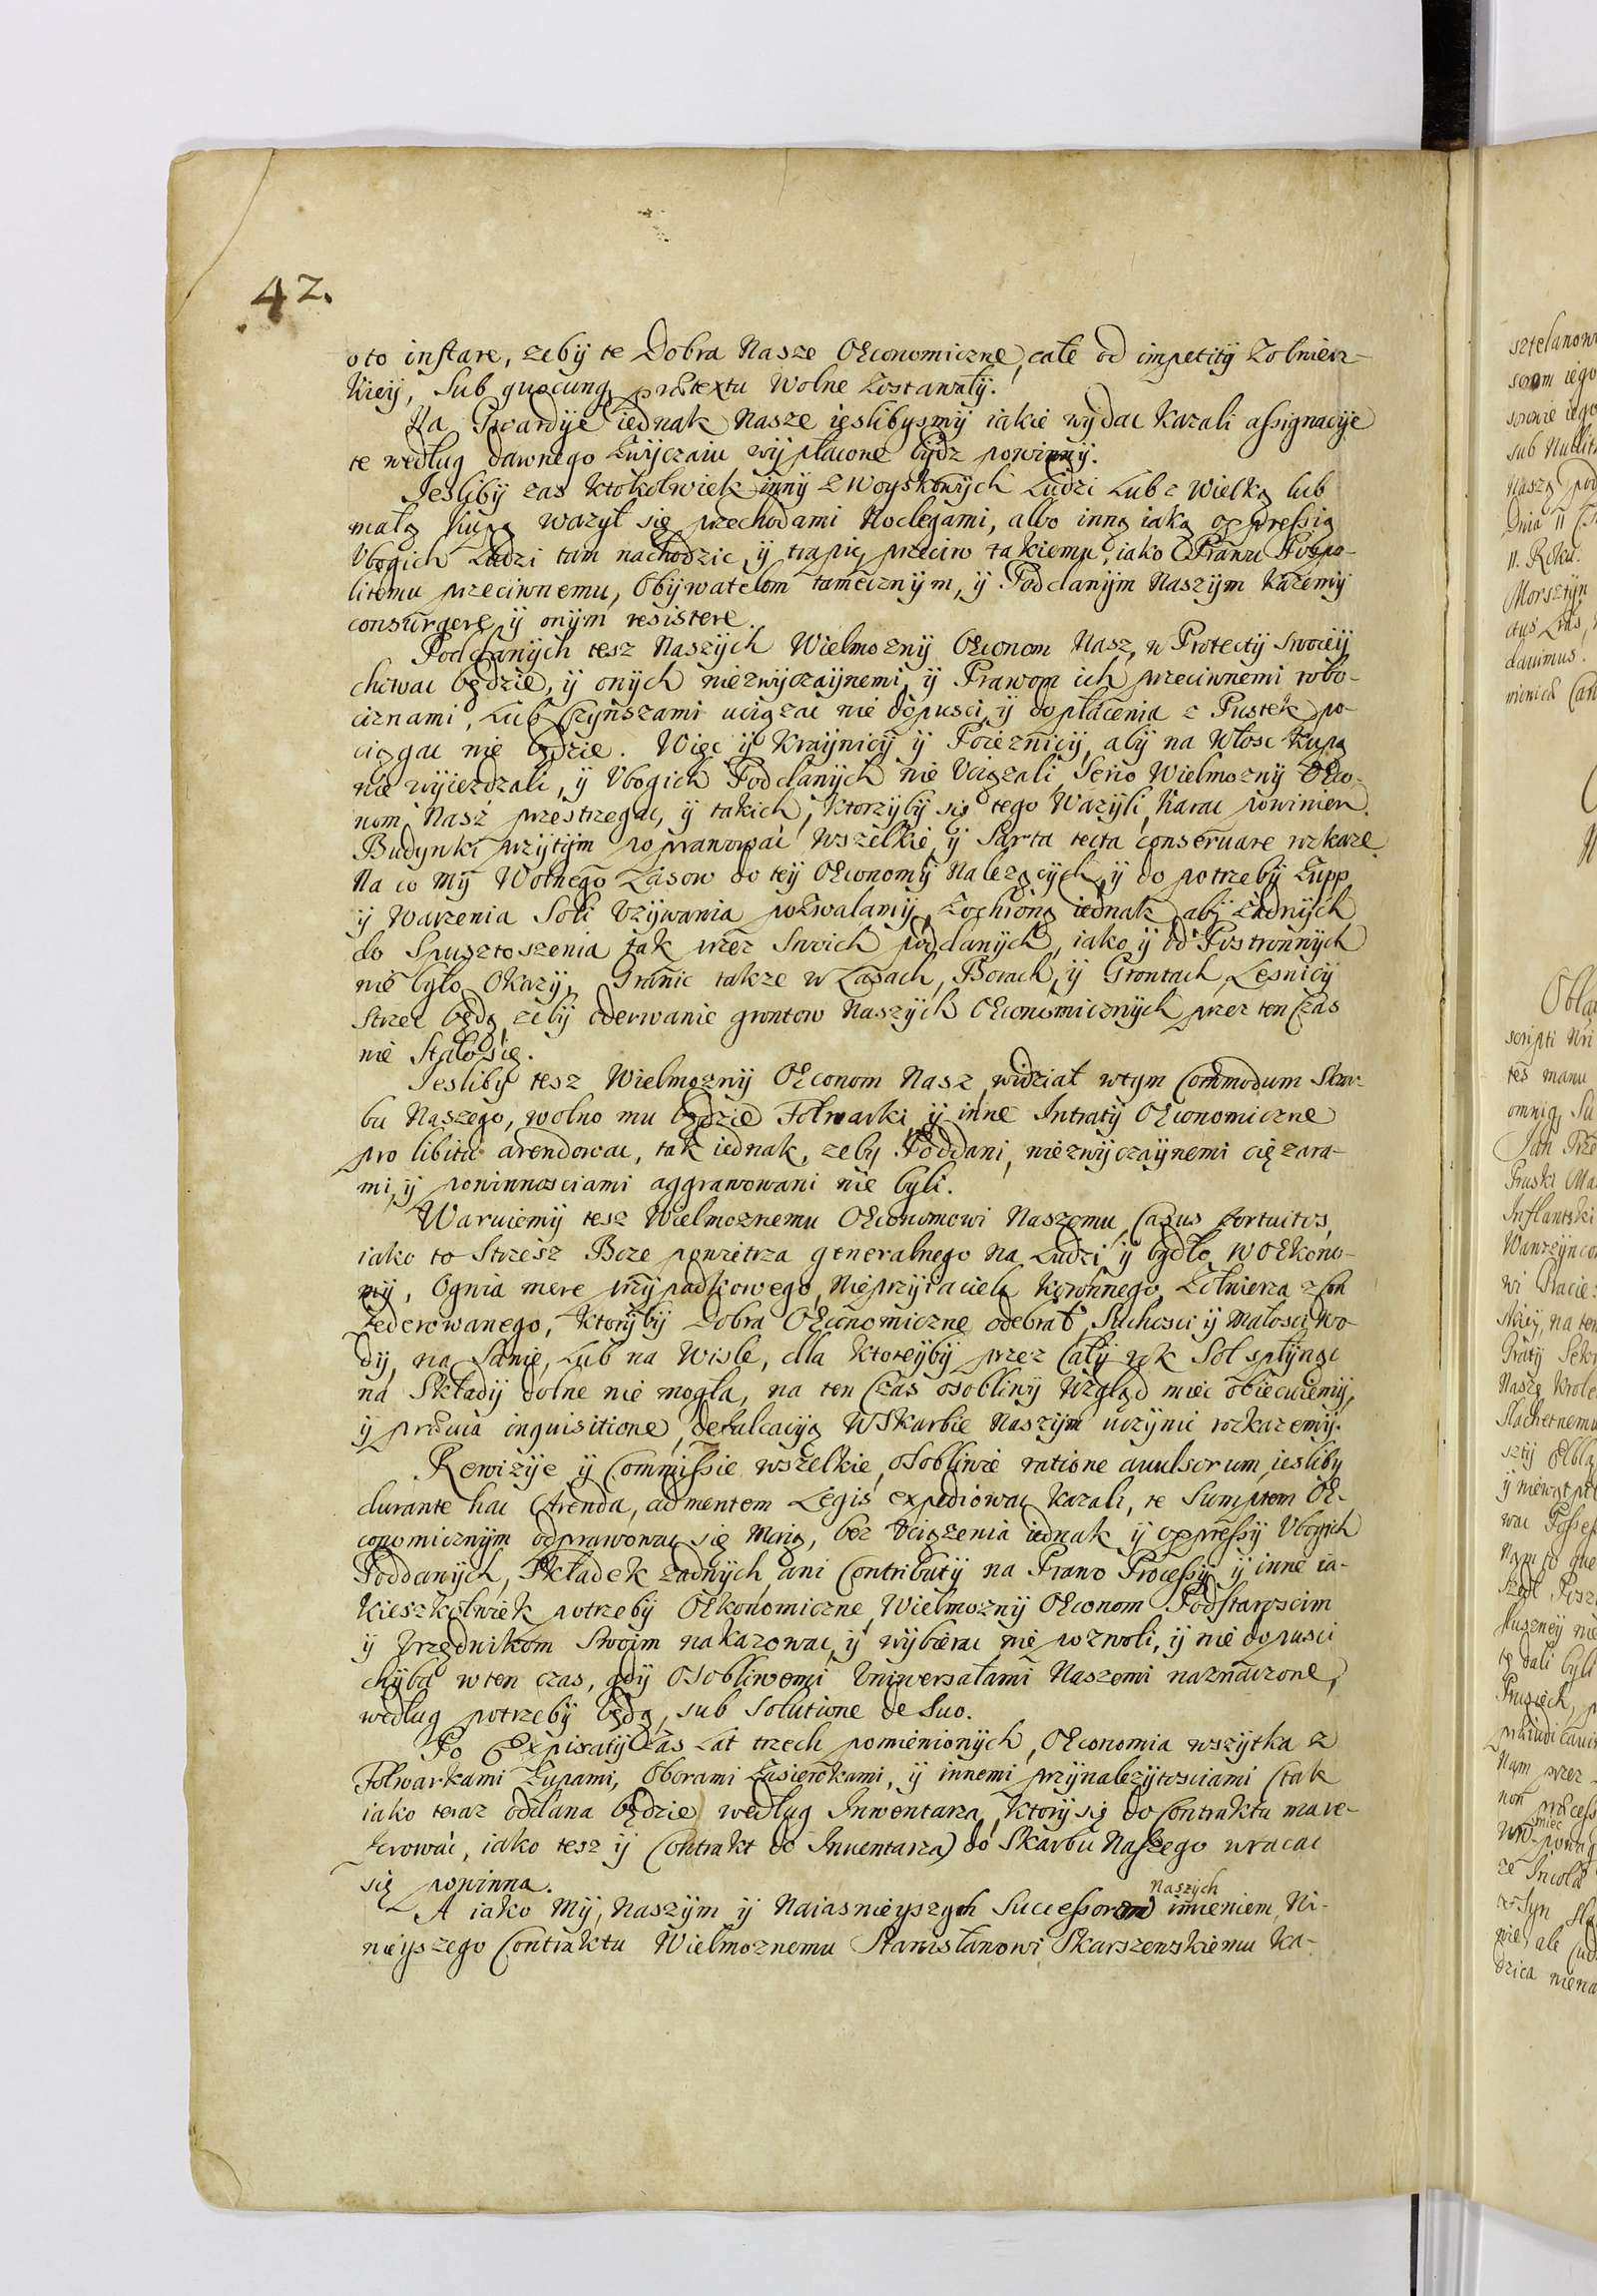 42.
o to instare, zeby te Dobra Nasze OEconomiczne, całe od impetity Zolnierz-
kiey, Sub quocunq praetextu Wolne Zostawały.
Na Gwardye iednak Nasze ieslibysmy iakie wydac kazali assignacye
te według dawnego Zwyczaiu wypłacone bydz powinny.
Iesliby zas ktokolwiek inny z Woyskowych Ludzi Lub z Wielką lub
małą kupą wazył się przechodami Noclegami, albo inną iaką oppressią
Vbogich Ludzi tam nachodzic, y trapic, przeciw takiemu, iako Prawu Pospo-
litemu przeciwnemu, Obywatelom tamecznym, y Poddanym Naszym każemy
consurgere y onym resistere.
Poddanych tesz Naszych Wielmozny OEconom Nasz, w Protecty Swoiey
chowac będzie, y onych niezwyczaynemi, y Prawom ich przeciwnemi robo-
ciznami, Lub Czynszami uciązac nie dopusci, y do płacenia z Pustek po-
ciągac nie będzie. Więc y Kraynicy y Poieznicy, aby na Włosc kupą
nie wyiezdzali, y Vbogich Poddanych nie Vciązali, Serio Wielmozny OEco-
nom Nasz przestrzegac, y takich, ktorzyby się tego Wazyli, karac powinien.
Budynki przytym poprawowac Wszelkie, y Sarta tecta conseruare rozkaze.
Na co My Wolnego Lasow do tey OEconomy Nalezących, y do potrzeby Zupp
y Warzenia Soli Vzywania pozwalamy, Zochroną iednak, aby Zadnych
do Spusztoszenia tak przez Swoich poddanych, iako y od Postronnych
nie było Okazy, Granic takze w Lasach, Borach, y Grontach Lesnicy
Strzec będą, zeby oderwanie grontow Naszych OEconomicznych przez ten Czas
nie Stało się.
Iesliby tesz Wielmozny OEconom Nasz, widział wtym Commodum Skar-
bu Naszego, wolno mu będzie Folwarki, y inne Intraty OEconomiczne
pro libitu arendowac, tak iednak, zeby Poddani, niezwyczaynemi cięzara-
mi, y powinnosciami aggrawowani nie byli.
Waruiemy tesz Wielmoznemu OEconomowi Naszemu, Casus fortuitos,
iako to Strzesz Boze powietrza generalnego na Ludzi y bydło, w OEkono-
my, Ognia mere przypadkowego, Nieprzyiaciela koronnego, Zołnierza zkon
federowanego, ktoryby Dobra OEconomiczne odebrał, Suchosci y Małosci Wo-
dy, na Sanie, Lub na Wisle, dla ktoreyby przez Cały rok Sol spłynąc
na Składy dolne nie mogła, na ten Czas osobliwy Wzgląd miec obiecuiemy,
y praevia inquisitione, defalcacyą WSkarbie Naszym uczynic rozkazemy.
Rewizye y Commissie wszelkie, osobliwie ratione auulsorum, iesliby
durante hac Arenda, ad mentem Legis expediowac kazali, te Sumptem OE-
conomicznym odprawowac się Maią, bez Vciązenia iednak y oppressy Vbogich
Poddanych, Składek zadnych, ani Contributy na Prawo Processy y inne ia-
kieszkolwiek potrzeby OEkonomiczne, Wielmozny OEconom Podstaroscim
y Vrzędnikom Swoim nakazowac, y wybierac nie pozwoli, y nie dopusci
chyba w ten czas, gdy osobliwemi Vniwersałami Naszemi naznaczone,
według potrzeby będą, sub Solutione de Suo.
Po Expiraty zas Lat trzech pomienionych, OEconomia wszytka z
Folwarkami Zupami, Oborami Lasierokami, y innemi przynalezytosciami (tak
iako teraz oddana będzie według Inwentarza, ktory się do Contraktu ma re-
ferowac, iako tesz y Contrakt do Inuentarza) do Skarbu Naszego wracac
się powinna.
A iako My, Naszym y Naiasnieyszych Successorow Naszych imieniem, Ni-
nieyszego Contraktu Wielmoznemu Stanisławowi Skarszewskiemu Ka-